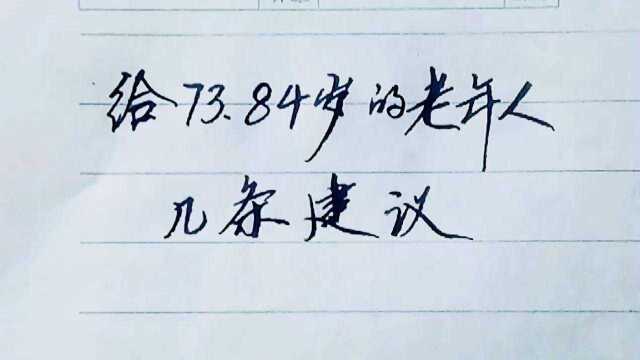 给73.84岁的老年人
几条建议